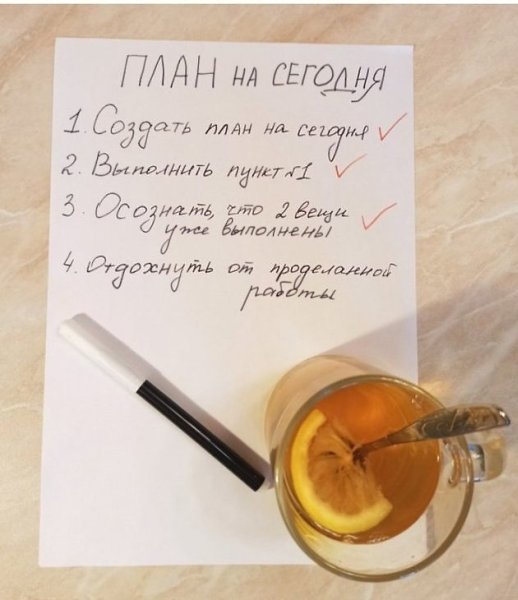 ПЛАН НА СЕГОДНЯ
1. Создать план на сегодня
2. Выполнить пункт №1
3. Осознать, что 2 вещи
уже выполнены
4. Отдохнуть от проделанной
работы